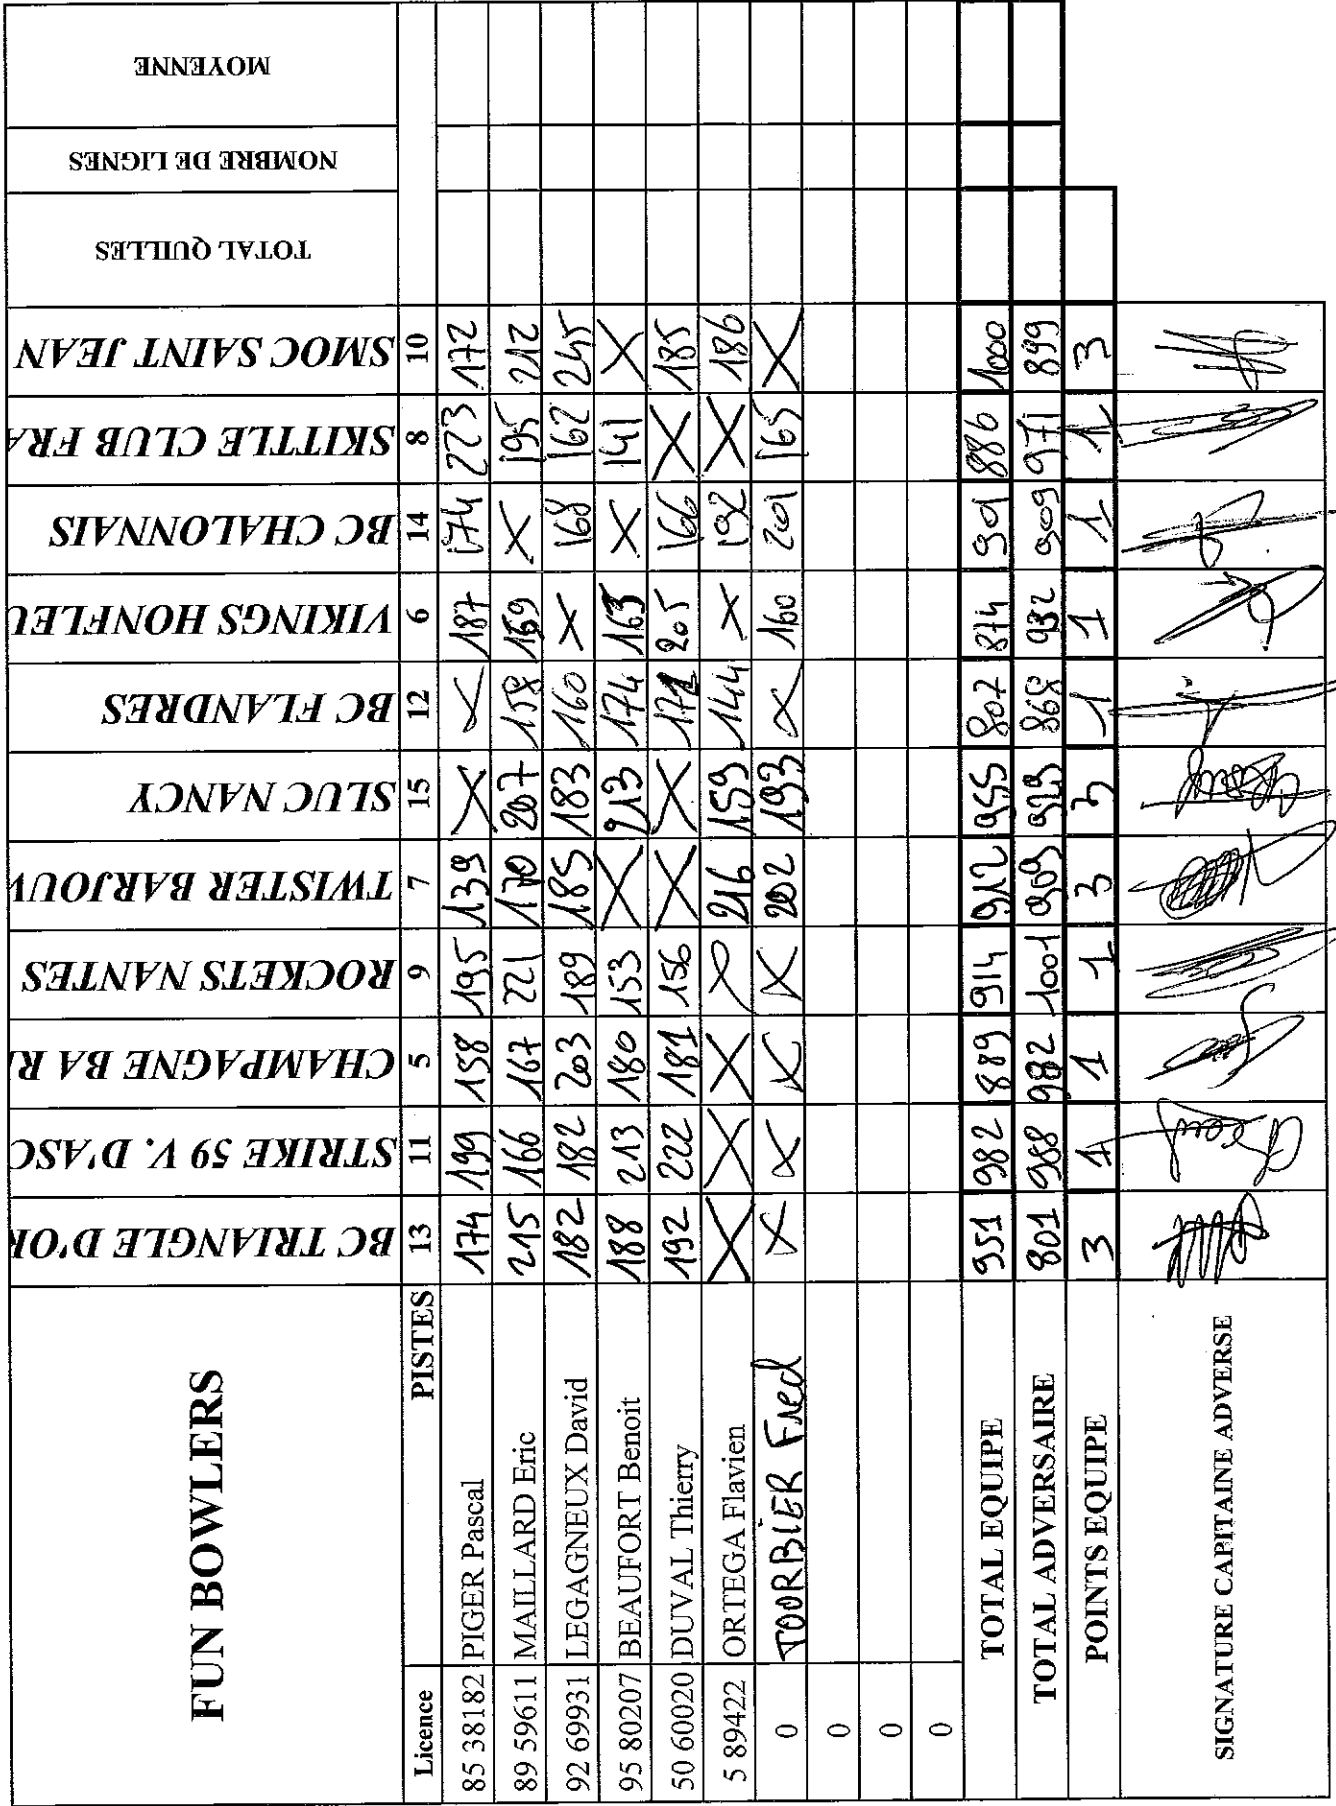 FUN BOWLERS BC TRIANGLE D'OR STRIKE 59 V. D'ASC CHAMPAGNE BA RE ROCKETS NANTES TWISTER BARJOUV SLUC NANCY BC FLANDRES VIKINGS HONFLEU BC CHALONNAIS SKITTLE CLUB FRA SMOC SAINT JEAN TOTAL QUILLES NOMBRE DE LIGNES MOYENNE
Licence PISTES 13 11 5 9 7 15 12 6 14 8 10
85 38182 PIGER Pascal 174 199 158 195 139 X X 187 174 223 172
89 59611 MAILLARD Eric 215 166 167 221 170 207 158 159 X 195 212
92 69931 LEGAGNEUX David 182 182 203 189 185 183 160 X 168 162 245
95 80207 BEAUFORT Benoit 188 213 180 153 X 213 174 163 X 141 X
50 60020 DUVAL Thierry 192 222 181 156 X X 171 205 166 X 185
5 89422 ORTEGA Flavien X X X X 216 159 144 X 192 X 186
0 TOORBIER Fred X X X X 202 193 X 160 201 165 X
0
0
0
TOTAL EQUIPE 951 982 889 914 912 955 807 874 901 886 1000
TOTAL ADVERSAIRE 801 988 982 1001 909 929 868 932 909 971 899
POINTS EQUIPE 3 1 1 1 3 3 1 1 1 1 3
SIGNATURE CAPITAINE ADVERSE